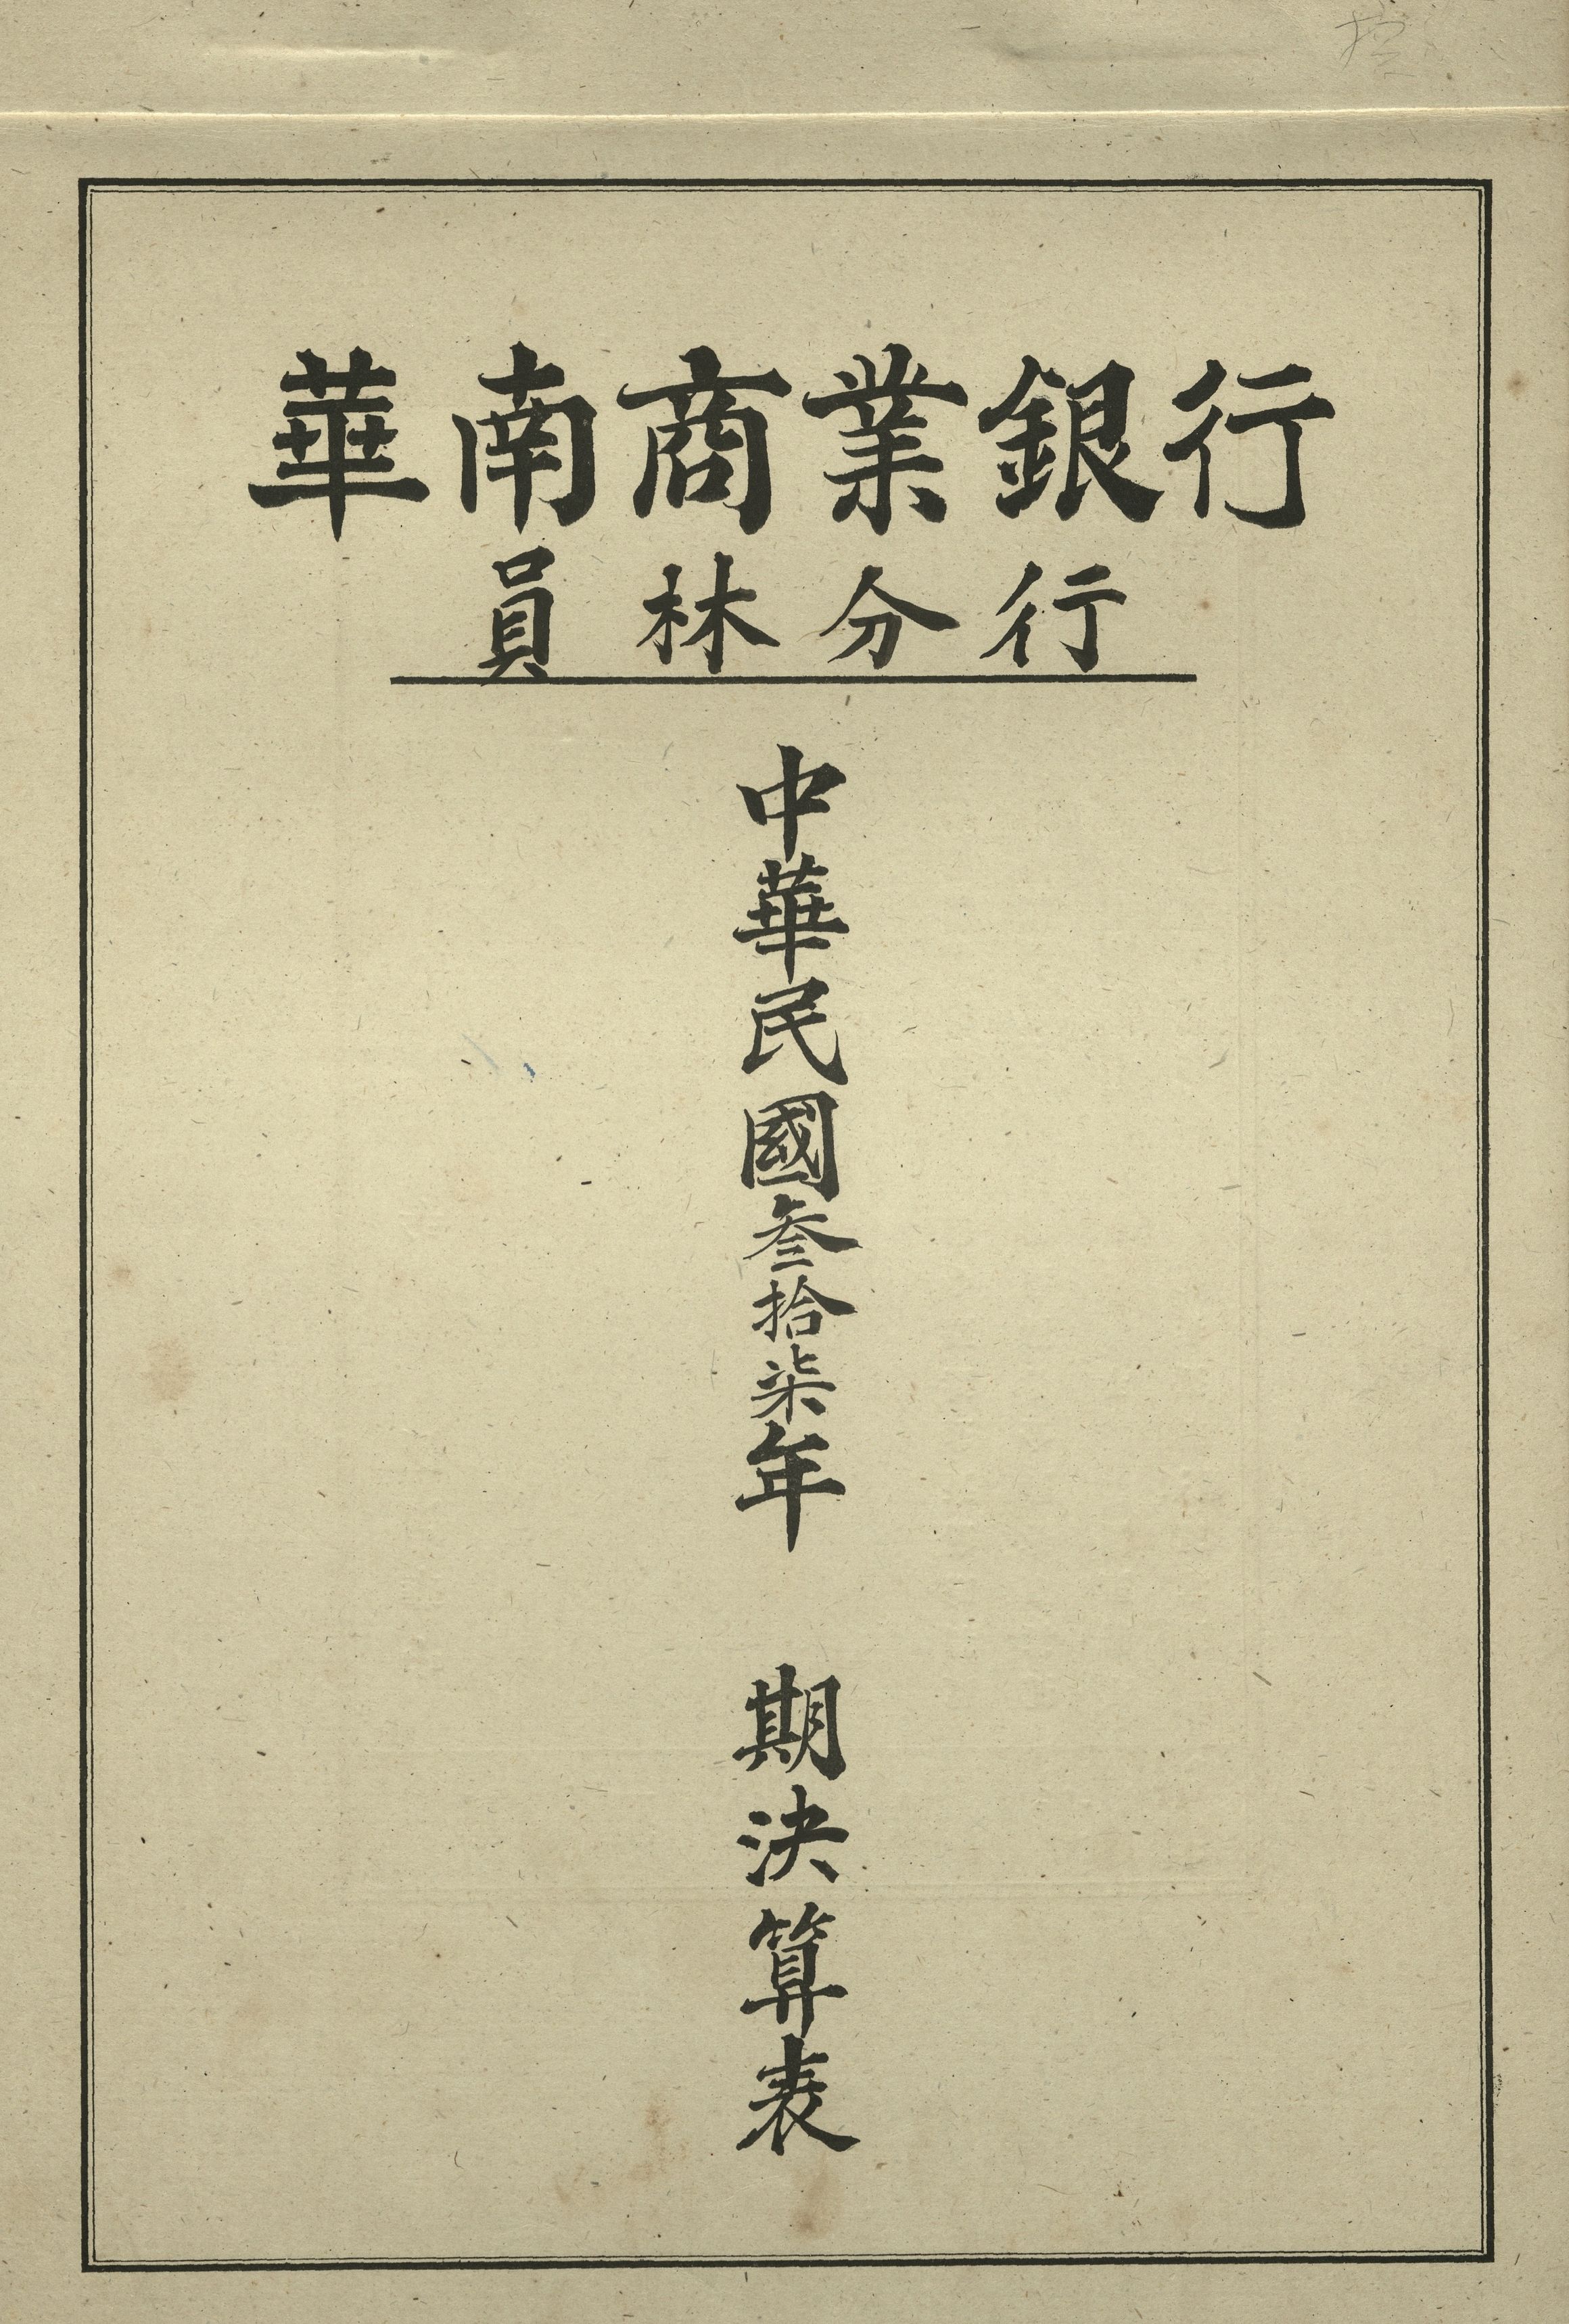 華南商業銀行
員林分行
中華民國叁拾柒年 期決算表